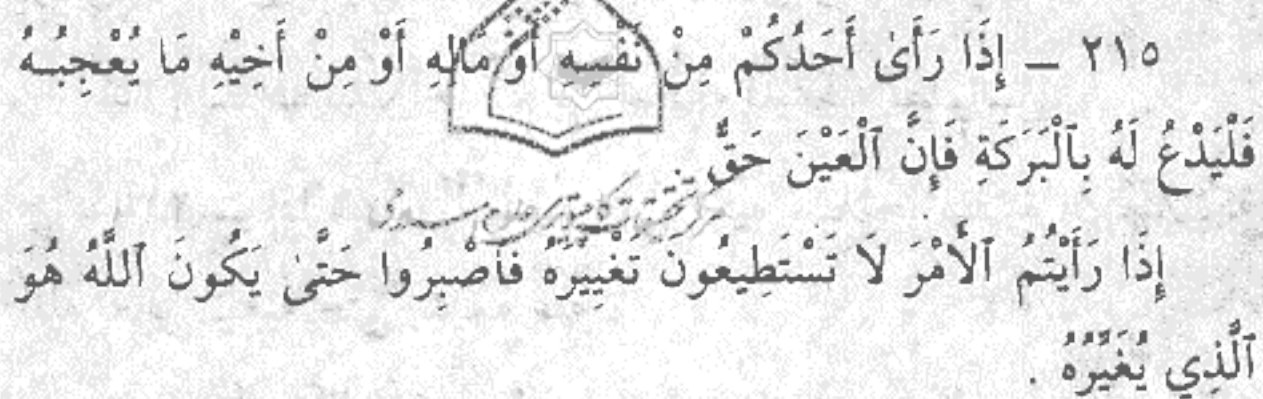 ٢١٥ ــ إِذَا رَأَىٰ أَحَدُكُمْ مِنْ نَفْسِهِ أَوْ مَالِهِ أَوْ مِنْ أَخِيْهِ مَا يُعْجِبُـهُ
فَلْيَدْعُ لَهُ بِٱلْبَرَكَةِ فَإِنَّ ٱلْعَيْنَ حَقٌّ .
إِذَا رَأَيْتُمُ ٱلْأَمْرَ لَا تَسْتَطِيعُونَ تَغْيِيْرَهُ فَٱصْبِرُوا حَتَّىٰ يَكُونَ ٱللَّهُ هُوَ
ٱلَّذِي يُغَيِّرُهُ .